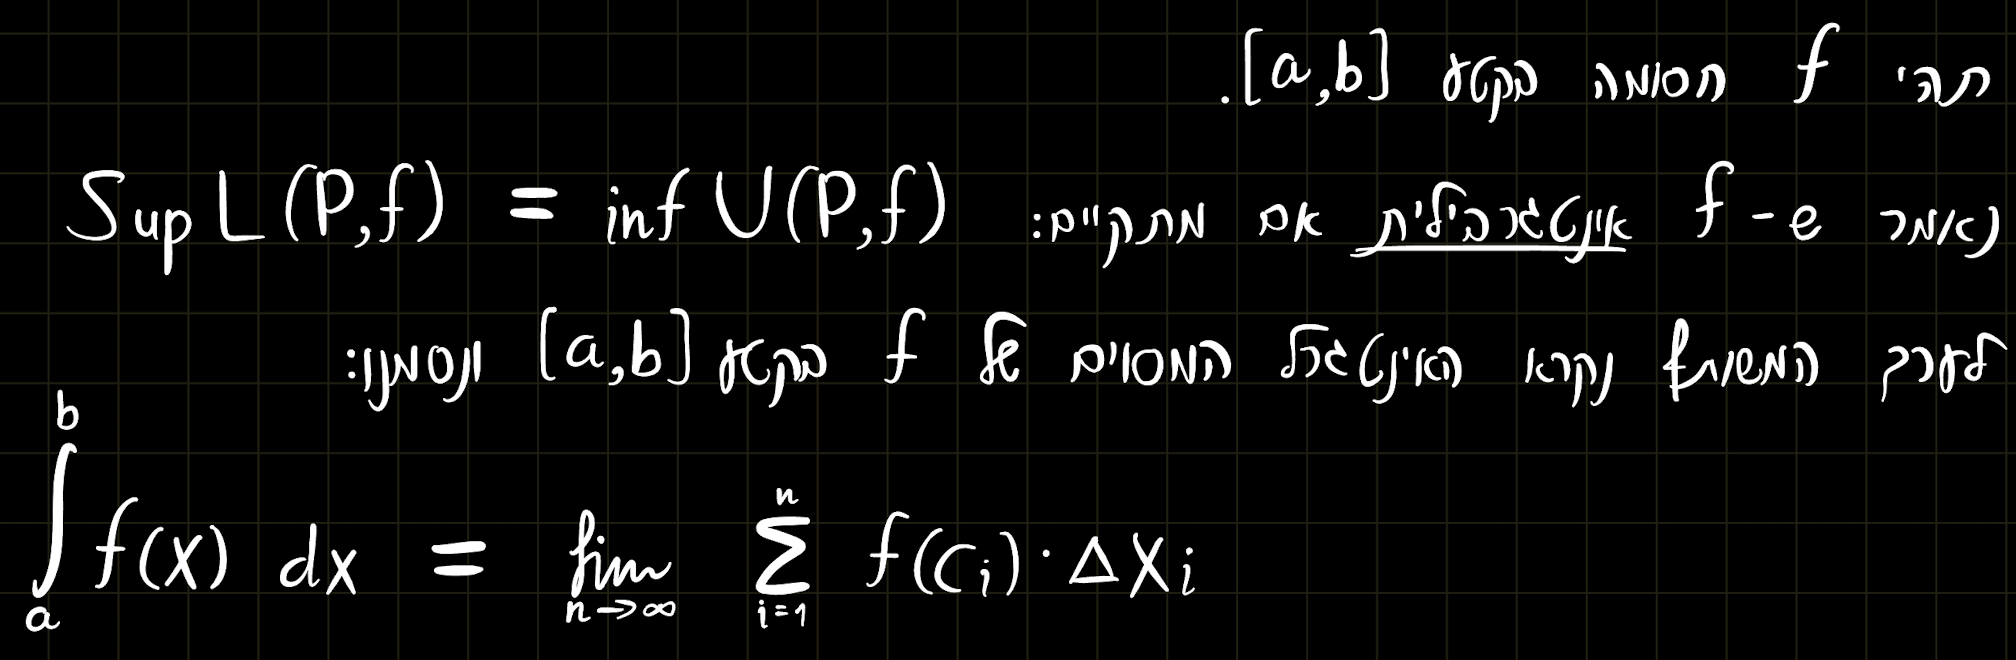 תהי f חסומה בקטע [a,b].
נאמר ש-f אינטגרבילית אם מתקיים: Sup L(P,f) = inf U(P,f)
לערך המשותף נקרא האינטגרל המסוים של f בקטע [a,b] ונסמנו:
∫_a^b f(x) dx = lim_{n→∞} ∑_{i=1}^n f(c_i)·Δx_i